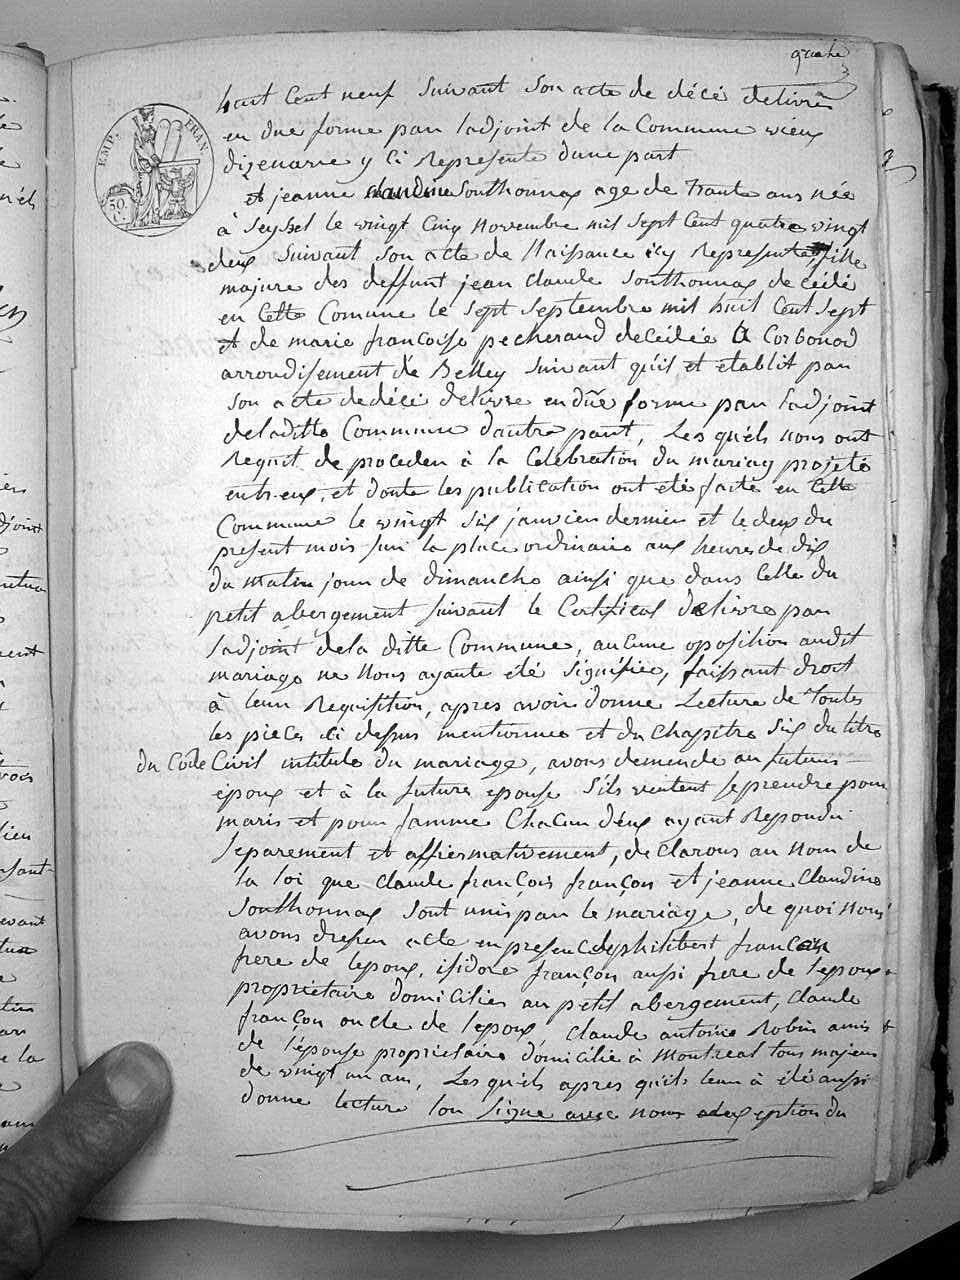 quatre
huit Cent neuf Suivant Son acte de décé delivré
en due forme par ladjoint de la Commune vieux
dizenave y Ci Represente dune part
EMP. FRAN.
50. C.
et jeanne Claudine Southonnax age de Trante ans née
à Seyssel le vingt Cinq novembre mil Sept Cent quatre vingt
deux Suivant Son acte de Naissance icy Represente, fille
majure des deffunt jean Claude Southonnax decédé
en Cette Comune le Sept Septembre mil huit Cent Sept
et de marie francoise pecherand decédée a Corbonod
arrondisement de Belley Suivant quil et etablit par
Son acte de décé delivré en dûe forme par ladjoint
deladitte Commune dautre part, Les quéls nous ont
Requit de proceder à la Célebration du mariag projeté
entr-eux, et donte les publication ont eté faite en Cette
Commune le vingt Six janvier dernier et le deux du
present mois Sur la place ordinaire aux heures de dix
du matin jour de dimanche ainsi que dans Celle du
petit abergement Suivant le Certificat delivre par
ladjoint dela ditte Commune, aucune oposition audit
mariage ne Nous ayante été Signifiée, faissant droit
à leur Requisition, apres avoir donne Lecture de Toutes
les pieces Ci dessus mentionnee et du Chapitre Six du titre
du Code Civil intitule du mariage, avons demende au futurs
époux et à la future epouse S'ils veulent Se prendre pour
maris et pour famme Chacun déux ayant Repondu
Separement et affiermativement, declarons au nom de
la loi que Claude françois françon et jeanne Claudine
Southonnax Sont unis par le mariage, de quoi nous
avons dresser acte en presence de philibert françon
frere de lepoux, isidore françon aussi frere de l'epoux
proprietaire domicilies au petit abergement, Claude
françon oncle de lepoux Claude antoine Robin amis
de l'épouse proprietaire domicilié à Montreal tous majeur
de vingt un an, Les quéls apres quils leur à élé aussi
donne lecture lon Signe avec nous adexeption du